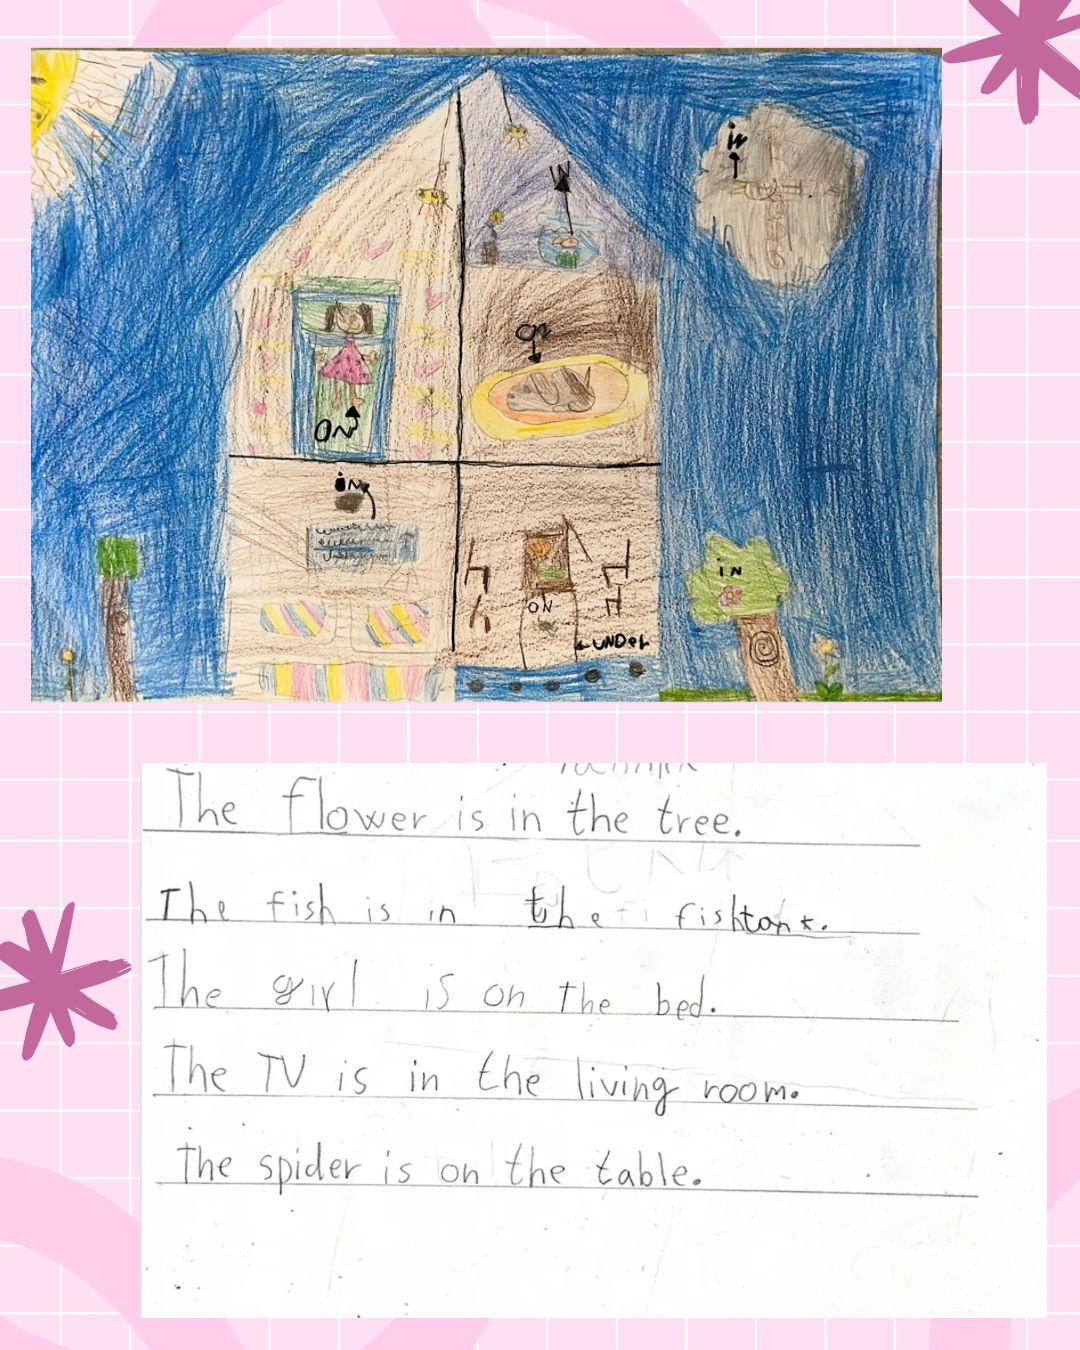 in
IN
on
ON
in
IN
ON
UNDer
The flower is in the tree.
The fish is in the fishtank.
The girl is on the bed.
The TV is in the living room.
The spider is on the table.